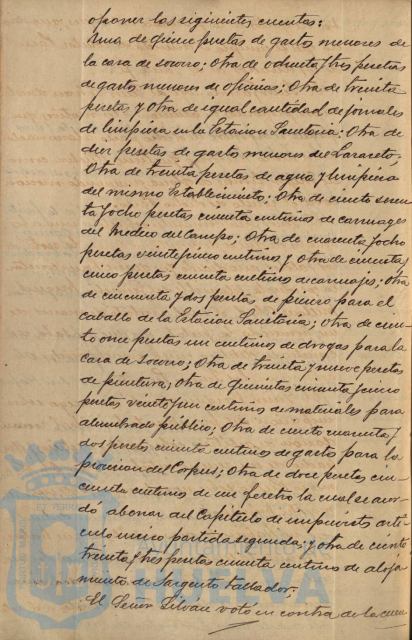 oponer las siguientes cuentas:
Una de quince pesetas de gastos menores de
la casa de socorro; Otra de ochenta y tres pesetas
de gastos menores de oficinas; Otra de treinta
pesetas y otra de igual cantidad de jornales
de limpieza en la Estacion Sanitaria; Otra de
diez pesetas de gastos menores del Lazareto;
Otra de treinta pesetas de agua y limpieza
del mismo Establecimiento; Otra de ciento
ta y ocho pesetas cincuenta centimos de carruages
del Medico del Campo; Otra de cuarenta y ocho
pesetas veinticinco centimos y otra de cincuenta y
cinco pesetas cincuenta centimos de carruajes; Otra
de cincuenta y dos pesetas de pienso para el
caballo de la Estacion Sanitaria; Otra de cien-
to once pesetas un centimos de drogas para la
casa de socorro; Otra de treinta y nueve pesetas
de pintura; Otra de quinientas cincuenta y cinco
pesetas veinte y un centimos de materiales para
alumbrado publico; Otra de ciento cuarenta y
dos pesetas cincuenta centimos de gastos para la
procesion del Corpus; Otra de doce pesetas cin-
cuenta centimos de un feretro la cual se acor-
dó abonar del Capitulo de imprevistos arti-
culo unico partida segunda; y otra de ciento
treinta y tres pesetas cincuenta centimos de aloja-
miento de Sargento tallador.
El Señor Silvan votó en contra de la cuen